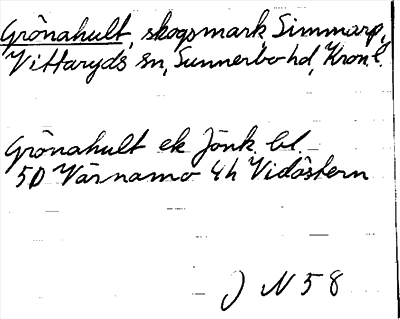 Grönahult, skogsmark Simmarp,
Vittaryds sn, Sunnerbo hd, Kron. l.
Grönahult ek Jönk. bl.
5D Värnamo 4h Vidöstern
J N 58